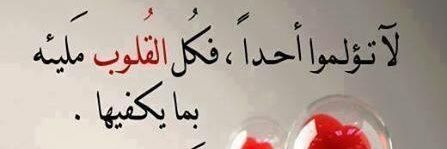 لآ تؤلموا أحداً ، فكُل القُلوب مَليئه
بما يكفيها .